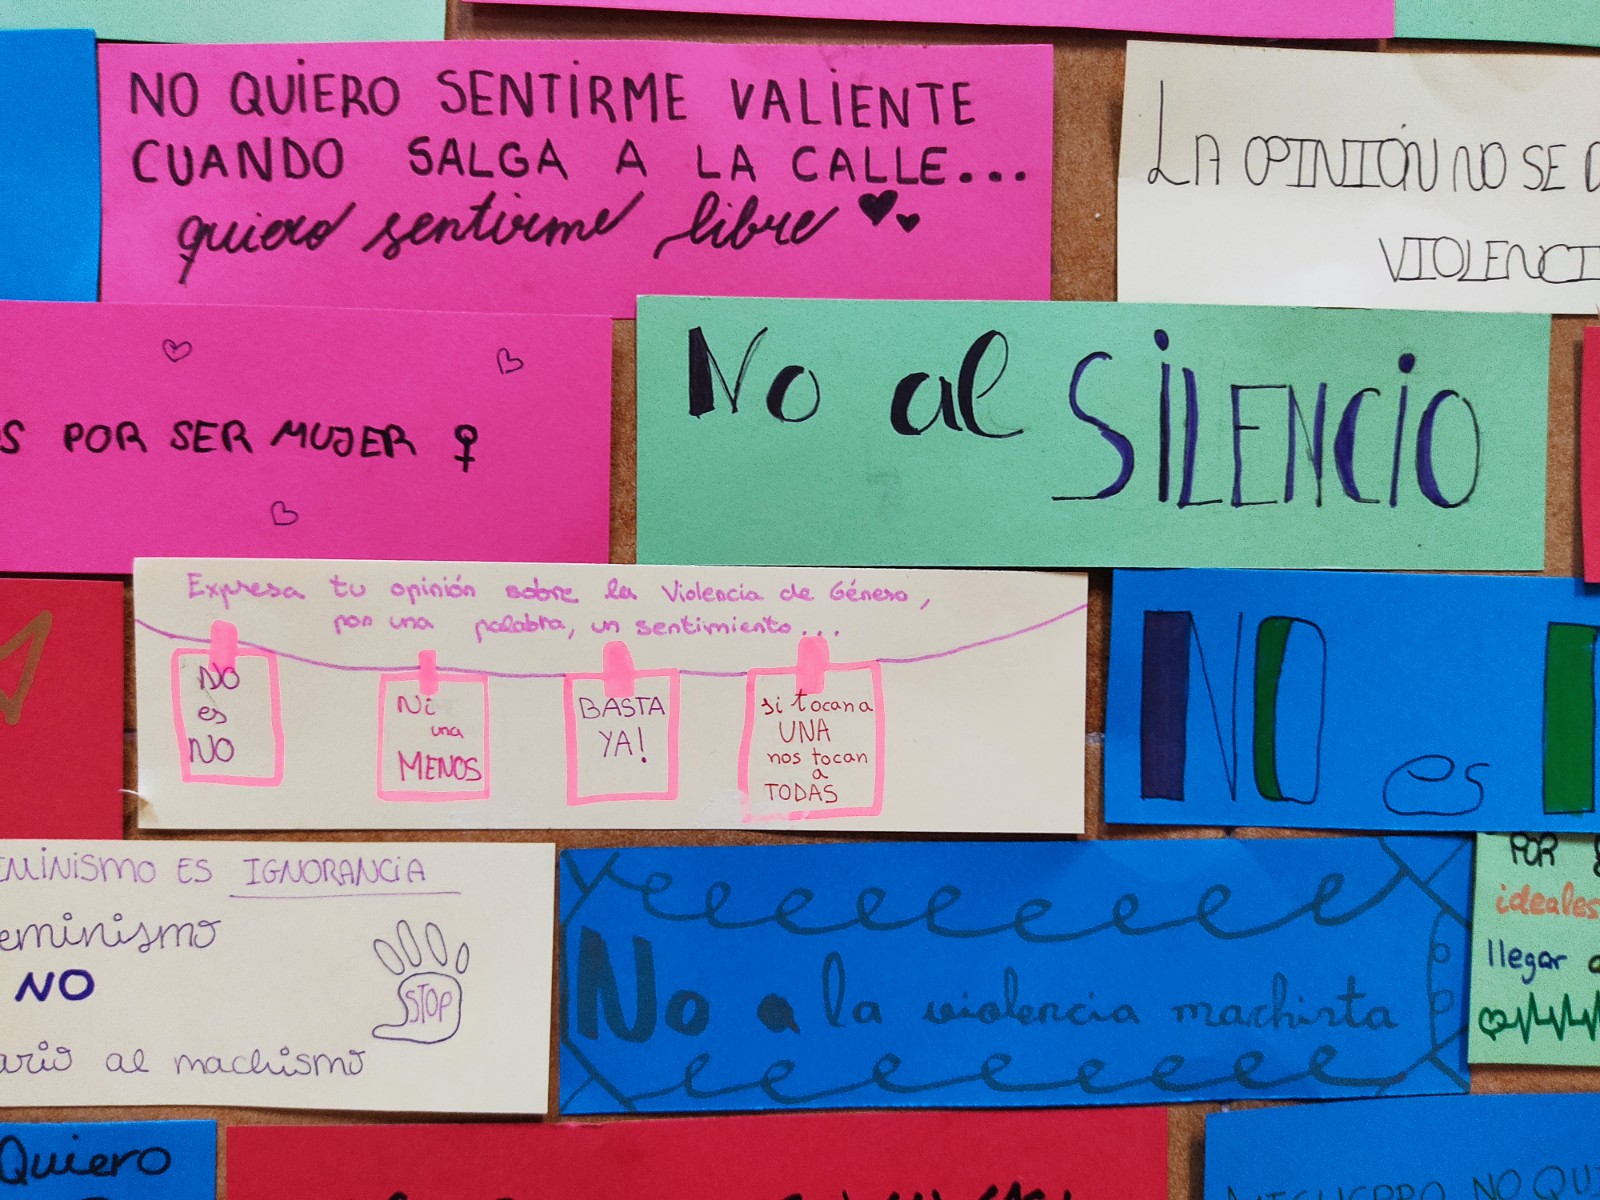 NO QUIERO SENTIRME VALIENTE
CUANDO SALGA A LA CALLE...
quiero sentirme libre
LA OPINIÓN NO SE
VIOLENCI
POR SER MUJER ♀
No al SILENCIO
Expresa tu opinión sobre la Violencia de Género,
por una palabra, un sentimiento...
NO
es
NO
Ni
una
MENOS
BASTA
YA!
si tocan a
UNA
nos tocan
a
TODAS
NO es
EMINISMO ES IGNORANCIA
eminismo
NO
STOP
ario al machismo
No a la violencia machista
POR
ideales
llegar
Quiero
NO QUI